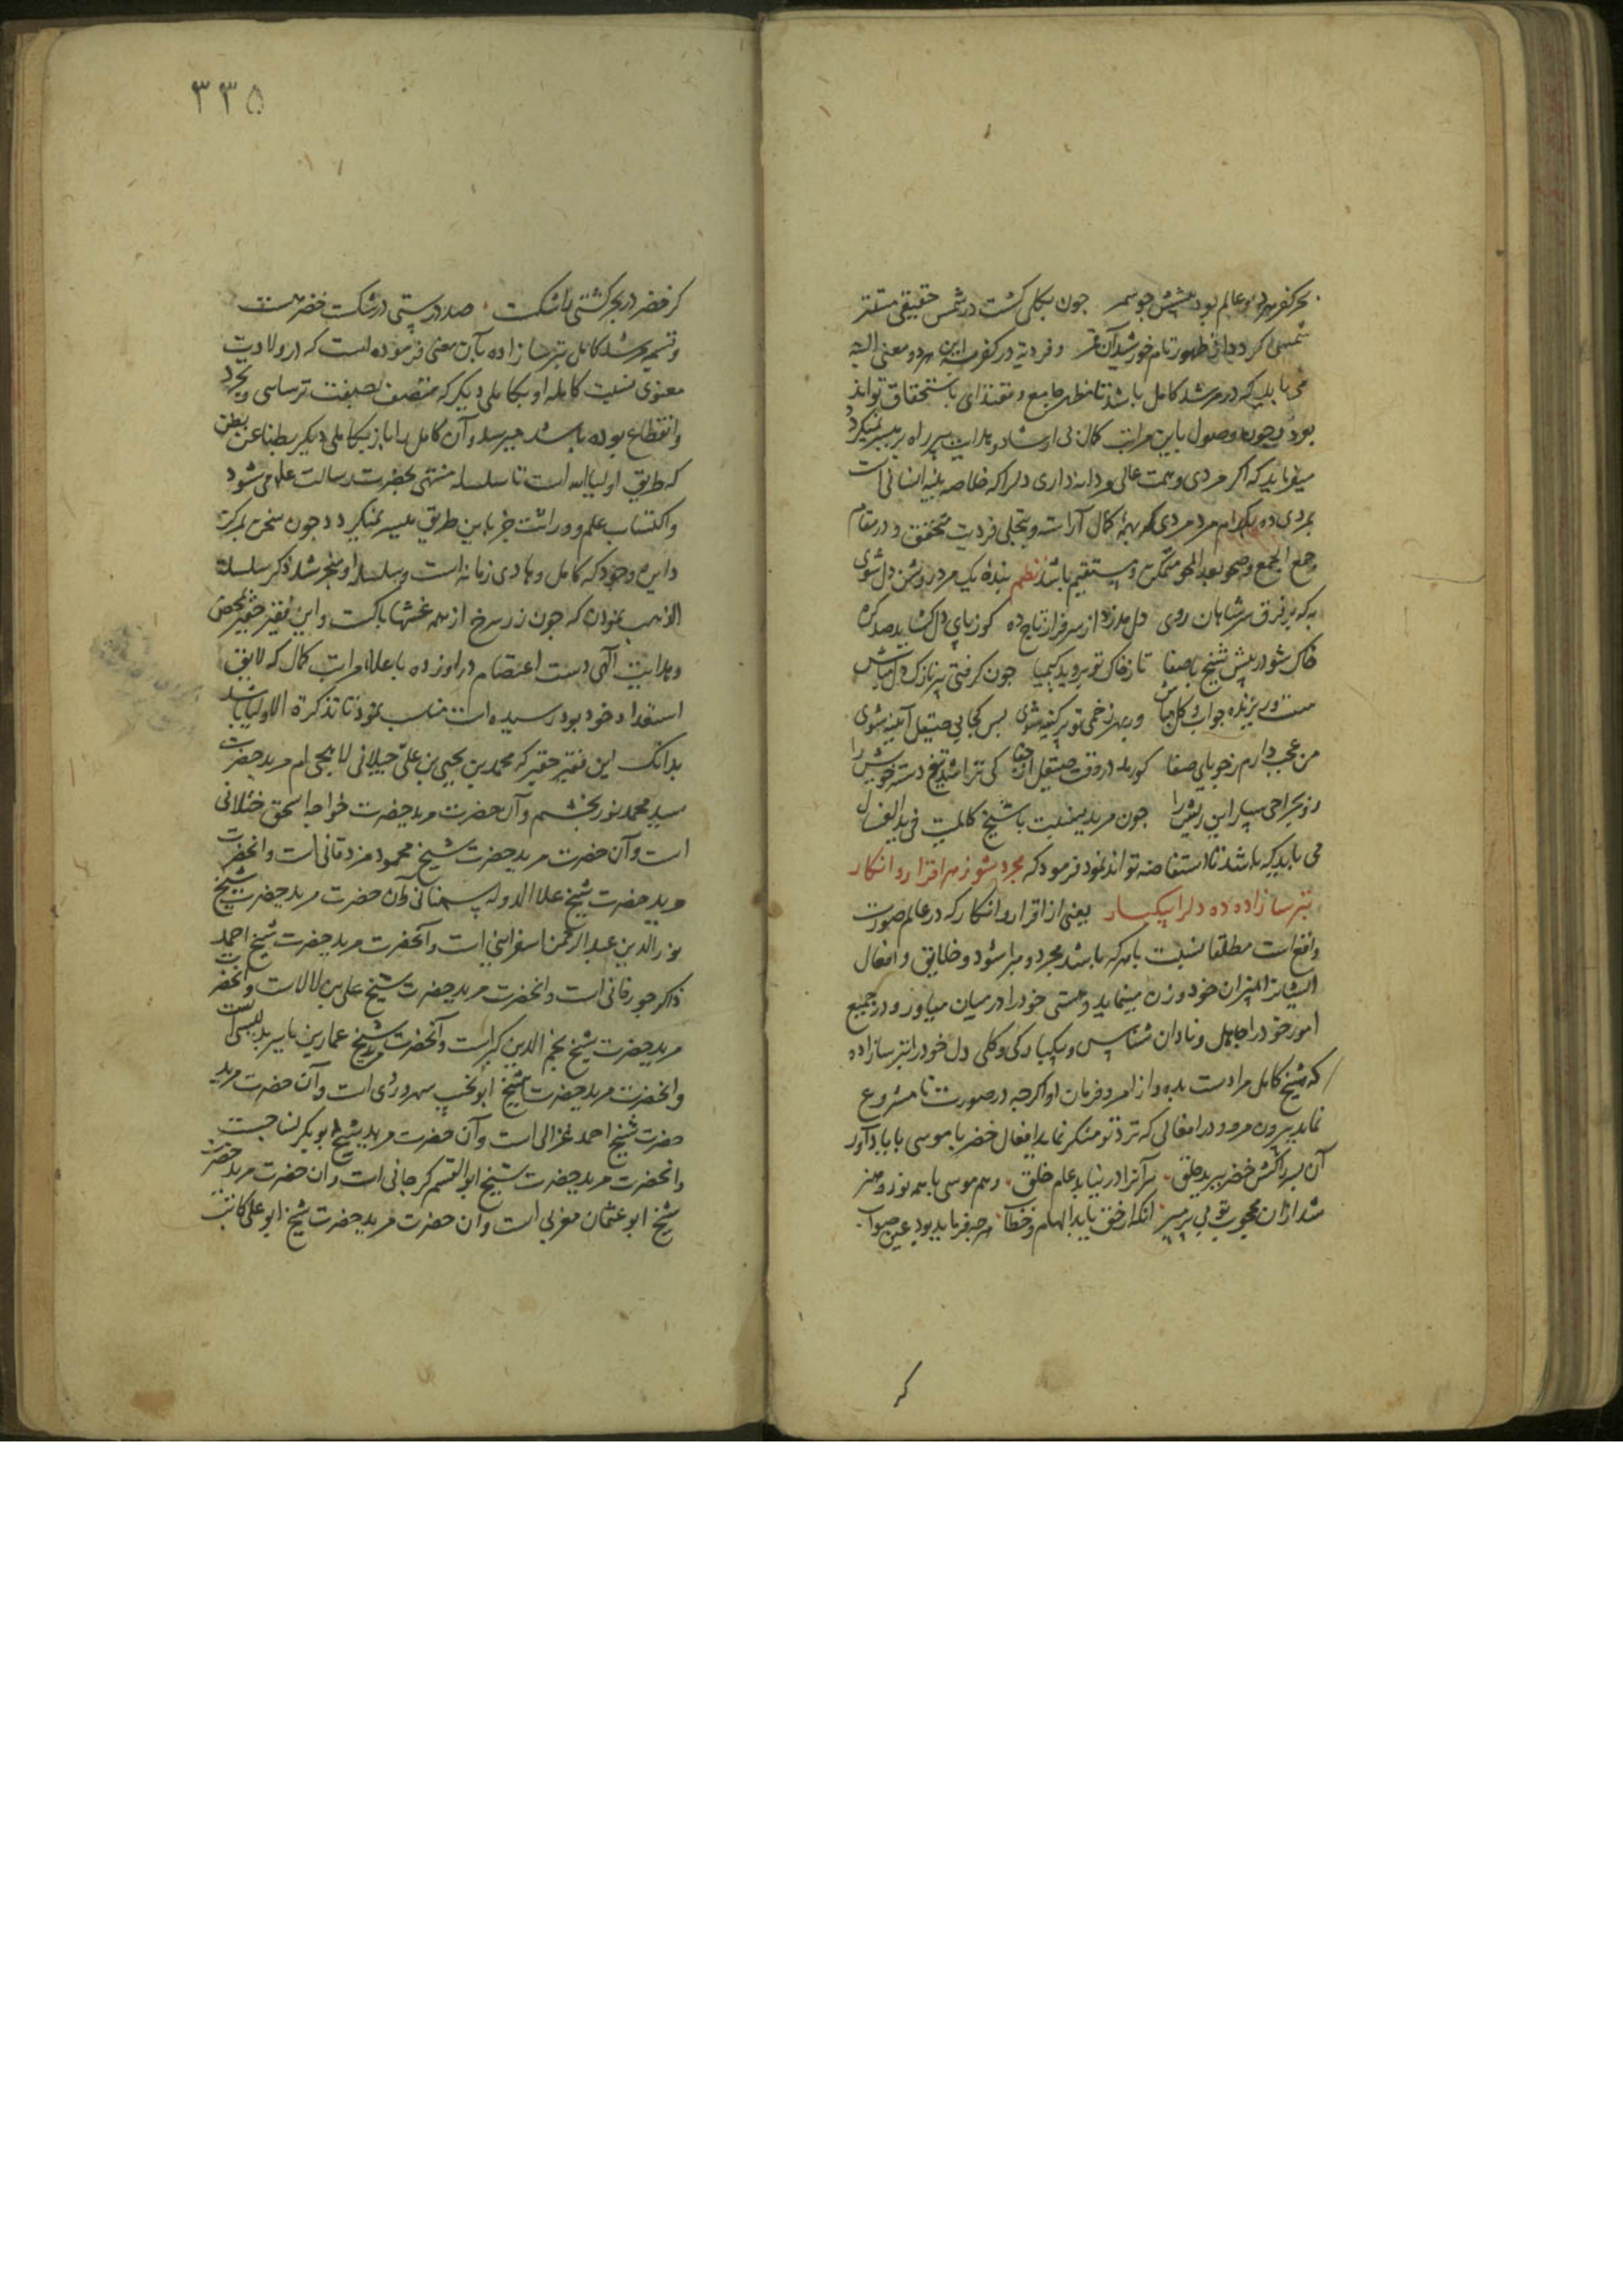 بحر کفر هر دو عالم بود پیشش جو سمر جون بکلی کشت در شمس حقیقی مستتر
شمسی اکر دانی ظهور تام خورشید آن قمر و فردیة در کفر این هر دو معنی البته
می باید که در مرشد کامل باشد تا مظهر جامع و مقتدای باستحقاق تواند
بود وجون وصول باین مراتب کمال بی ارشاد و هدایت پیر راه بر میسر نمیکردد
میفرماید که اکر مردی و همت عالی مردانه داری دلرا که خلاصه بنیه انسانی است
بمردی ده کدام مرد مردی که بهمه کمال آراسته و بتجلی فردیت متحقق و در مقام
جمع الجمع و صحو بعد المحو متمکن و مستقیم باشد نظم بندهٔ یک مرد روشن دل شوی
به که بر فرق سر شاهان روی دل مدزد از سرفراز تاج ده کو ز پای دل کشاید صد کره
خاک شو در پیش شیخ با صفا تا ز خاک تو بروید کیمیا جون کرفتی پیر نازک دل مباش
سست و ریزیده جو آب و کل مباش ور بهر زخمی تو پر کینه شوی پس کجا بی صیقل آینه شوی
من عجب دارم ز جویای صفا کو رمد در وقت صیقل از جفا کی تراشد تیغ دستهٔ خویش را
رو بجراحی سپار این ریش را جون مرید بنسبت با شیخ کالمیت فی ید الغسال
می باید که باشد تا استفاضه تواند نمود فرمود که مجرد شو ز هر اقرار و انکار
بترسا زاده ده دلرا بیکبار یعنی از اقرار و انکار که در عالم صورت
واقع است مطلقا نسبت با هر که باشد مجرد و مبرا شود و خلایق و افعال
ایشانرا بمیزان خود وزن مینماید و هستی خود را در میان میاور و در جمیع
امور خود را جاهل و نادان شناس و بیکبارکی و کلی دل خود را بترسا زاده
که شیخ کامل مرادست بده و از امر و فرمان او اکرجه در صورت نامشروع
نماید بیرون مرو و در افعالی که نزد تو منکر نماید افعال خضر با موسی با یاد آور
آن بسر را کش خضر ببرید حلق سر آنرا در نیابد عام خلق وهم موسی با همه نور و هنر
شد از آن محجوب تو بی پر مپر آنکه از حق یابد الهام و خطاب هر جه فرماید بود عین صواب
کر
۳۳۵
کر خضر در بحر کشتی را شکست صد درستی در شکست خضر هست
و تسمیه مرشد کامل بترسا زاده بآن معنی فرموده است که در ولادت
معنوی نسبت کامله او بکاملی دیکر که متصف بصفت ترسایی و تجرد
و انقطاع بوده باشد میرسد و آن کامل را باز بکاملی دیکر بطنا عن بطن
که طریق اولیا الله است تا سلسله منتهی بحضرت رسالت علم می شود
و اکتساب علم و وراثت جز باین طریق میسر نمیکردد جون سخن بمرکز
دایره وجود که کامل و هادی زمانه است و سلسله او منجر شد ذکر سلسلة
الذهب نمودن که جون زر سرخ از همه غشها پاکست و این فقیر حقیر بمحض
و هدایت الهی دست اعتصام در او زده باعلا مراتب کمال که لایق
استعداد خود بود رسیده است مناسب نمود تا تذکرة الاولیا باشد
بدانک این فقیر حقیر که محمد بن یحیی بن علی جیلانی لاهیجی ام مرید حضرت
سید محمد نوربخشم و آن حضرت مرید حضرت خواجه اسحق ختلانی
است و آن حضرت مرید حضرت شیخ محمود مزدقانی است و آنحضرت
مرید حضرت شیخ علاالدوله سمنانی و آن حضرت مرید حضرت شیخ
نور الدین عبد الرحمن اسفراینی است و آنحضرت مرید حضرت شیخ احمد
ذاکر جورفانی است و آنحضرت مرید حضرت شیخ علی بن لالاست و آنحضرت
مرید حضرت شیخ نجم الدین کبراست و آنحضرت مرید شیخ عمار بن یاسر بدلیسی است
و آنحضرت مرید حضرت شیخ ابو نجیب سهروردی است و آن حضرت مرید
حضرت شیخ احمد غزالی است و آن حضرت مرید شیخ ابو بکر نساجست
و آنحضرت مرید حضرت شیخ ابو القسم کرجانی است و آن حضرت مرید حضرت
شیخ ابو عثمان مغربی است و آن حضرت مرید حضرت شیخ ابو علی کاتب